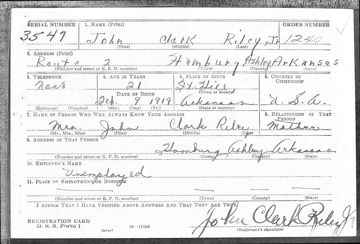 SERIAL NUMBER 1. NAME (Print) ORDER NUMBER
3547 John Clark Riley Jr 1240
(First) (Middle) (Last)
2. ADDRESS (Print)
Route 2 Hamburg Ashley Arkansas
(Number and street or R. F. D. number) (Town) (County) (State)
3. TELEPHONE 4. AGE IN YEARS 5. PLACE OF BIRTH 6. COUNTRY OF CITIZENSHIP
None 21
(Town or county)
DATE OF BIRTH
Feb. 9 1919 Arkansas U.S.A.
(Exchange) (Number) (Mo.) (Day) (Yr.) (State or country)
7. NAME OF PERSON WHO WILL ALWAYS KNOW YOUR ADDRESS 8. RELATIONSHIP OF THAT PERSON
Mrs. John Clark Riley Mother
(Mr., Mrs., Miss) (First) (Middle) (Last)
9. ADDRESS OF THAT PERSON
Hamburg Ashley Arkansas
(Number and street or R. F. D. number) (Town) (County) (State)
10. EMPLOYER'S NAME
Unemployed
11. PLACE OF EMPLOYMENT OR BUSINESS
(Number and street or R. F. D. number) (Town) (County) (State)
I AFFIRM THAT I HAVE VERIFIED ABOVE ANSWERS AND THAT THEY ARE TRUE.
REGISTRATION CARD
D. S. S. FORM 1
John Clark Riley Jr
(Registrant's signature)